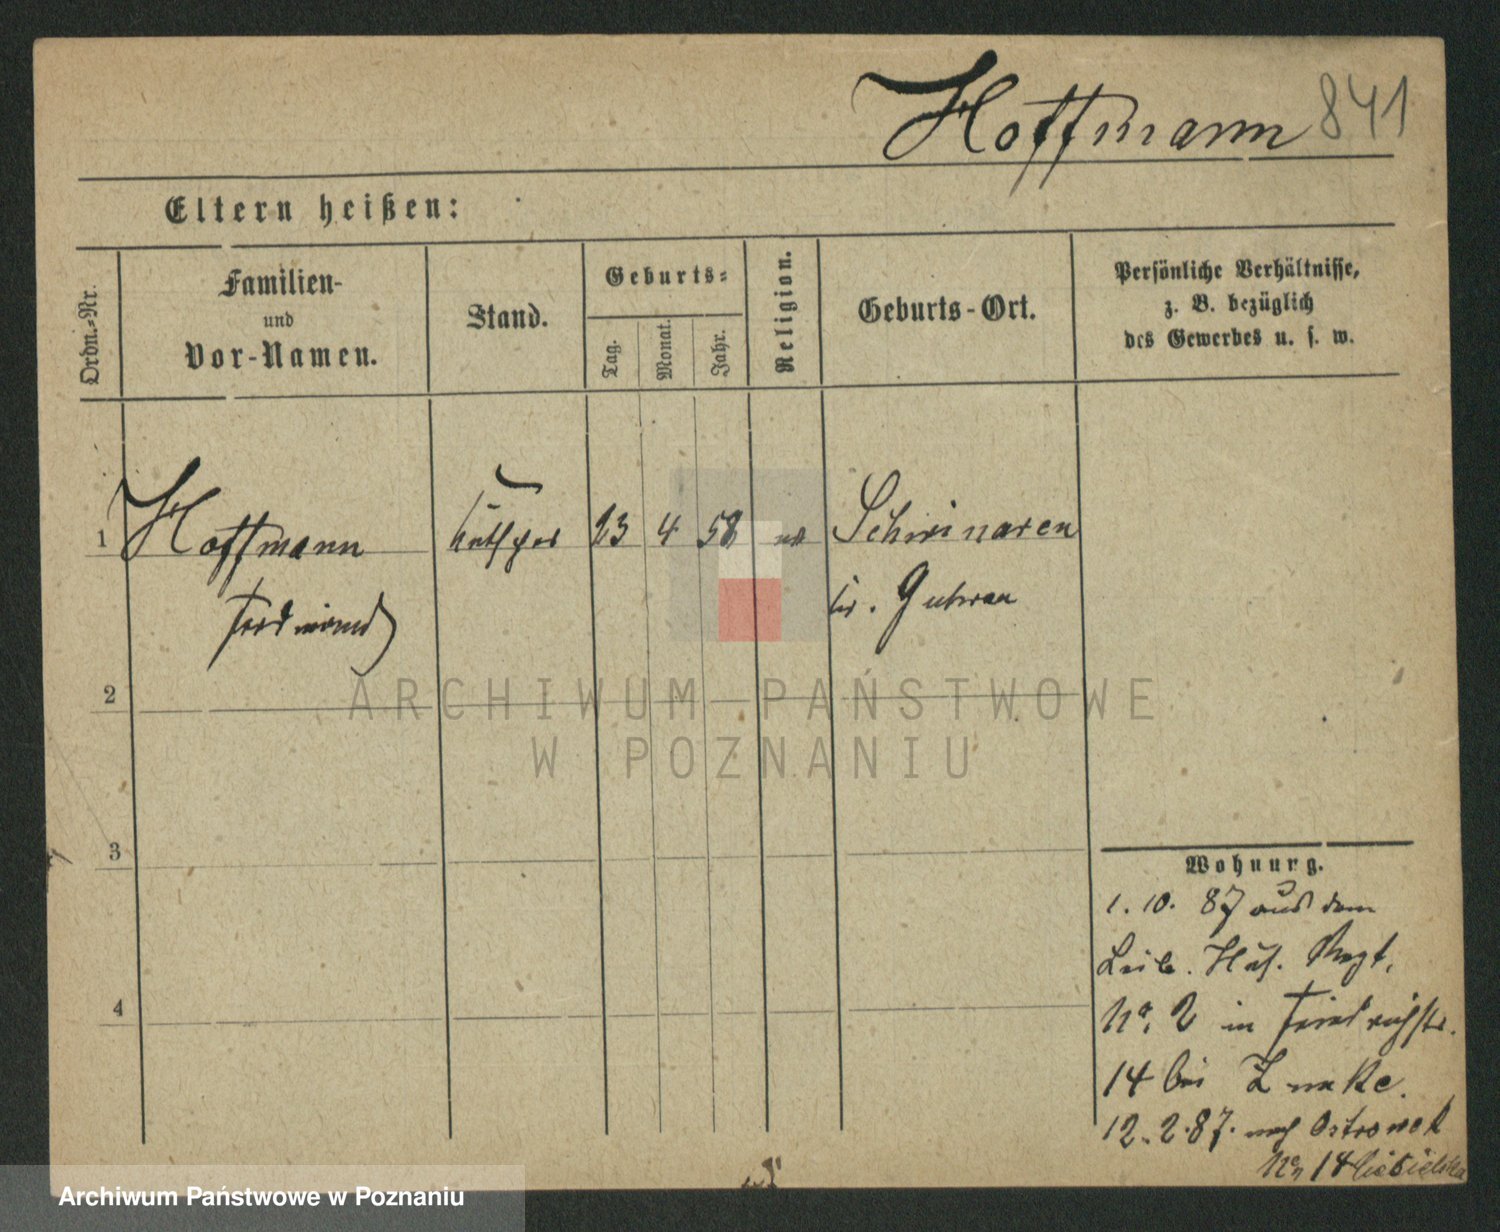 Hoffmann 841
Eltern heißen:
Ordn.-Nr.
Familien-
und
Vor-Namen.
Stand.
Geburts-
Tag.
Monat.
Jahr.
Religion.
Geburts-Ort.
Persönliche Verhältnisse,
z. B. bezüglich
des Gewerbes u. s. w.
1 Hoffmann Kutscher 23 4 58 ev Schwinaren
Ferdinand Kr. Guhrau
2
3
4
Wohnung.
1. 10. 87 aus dem
Leib. Hus. Regt.
No. 2 in Friedrichstr.
14 bei
12. 2. 87. nach Ostrowek
No 14
ARCHIWUM PAŃSTWOWE
W POZNANIU
Archiwum Państwowe w Poznaniu